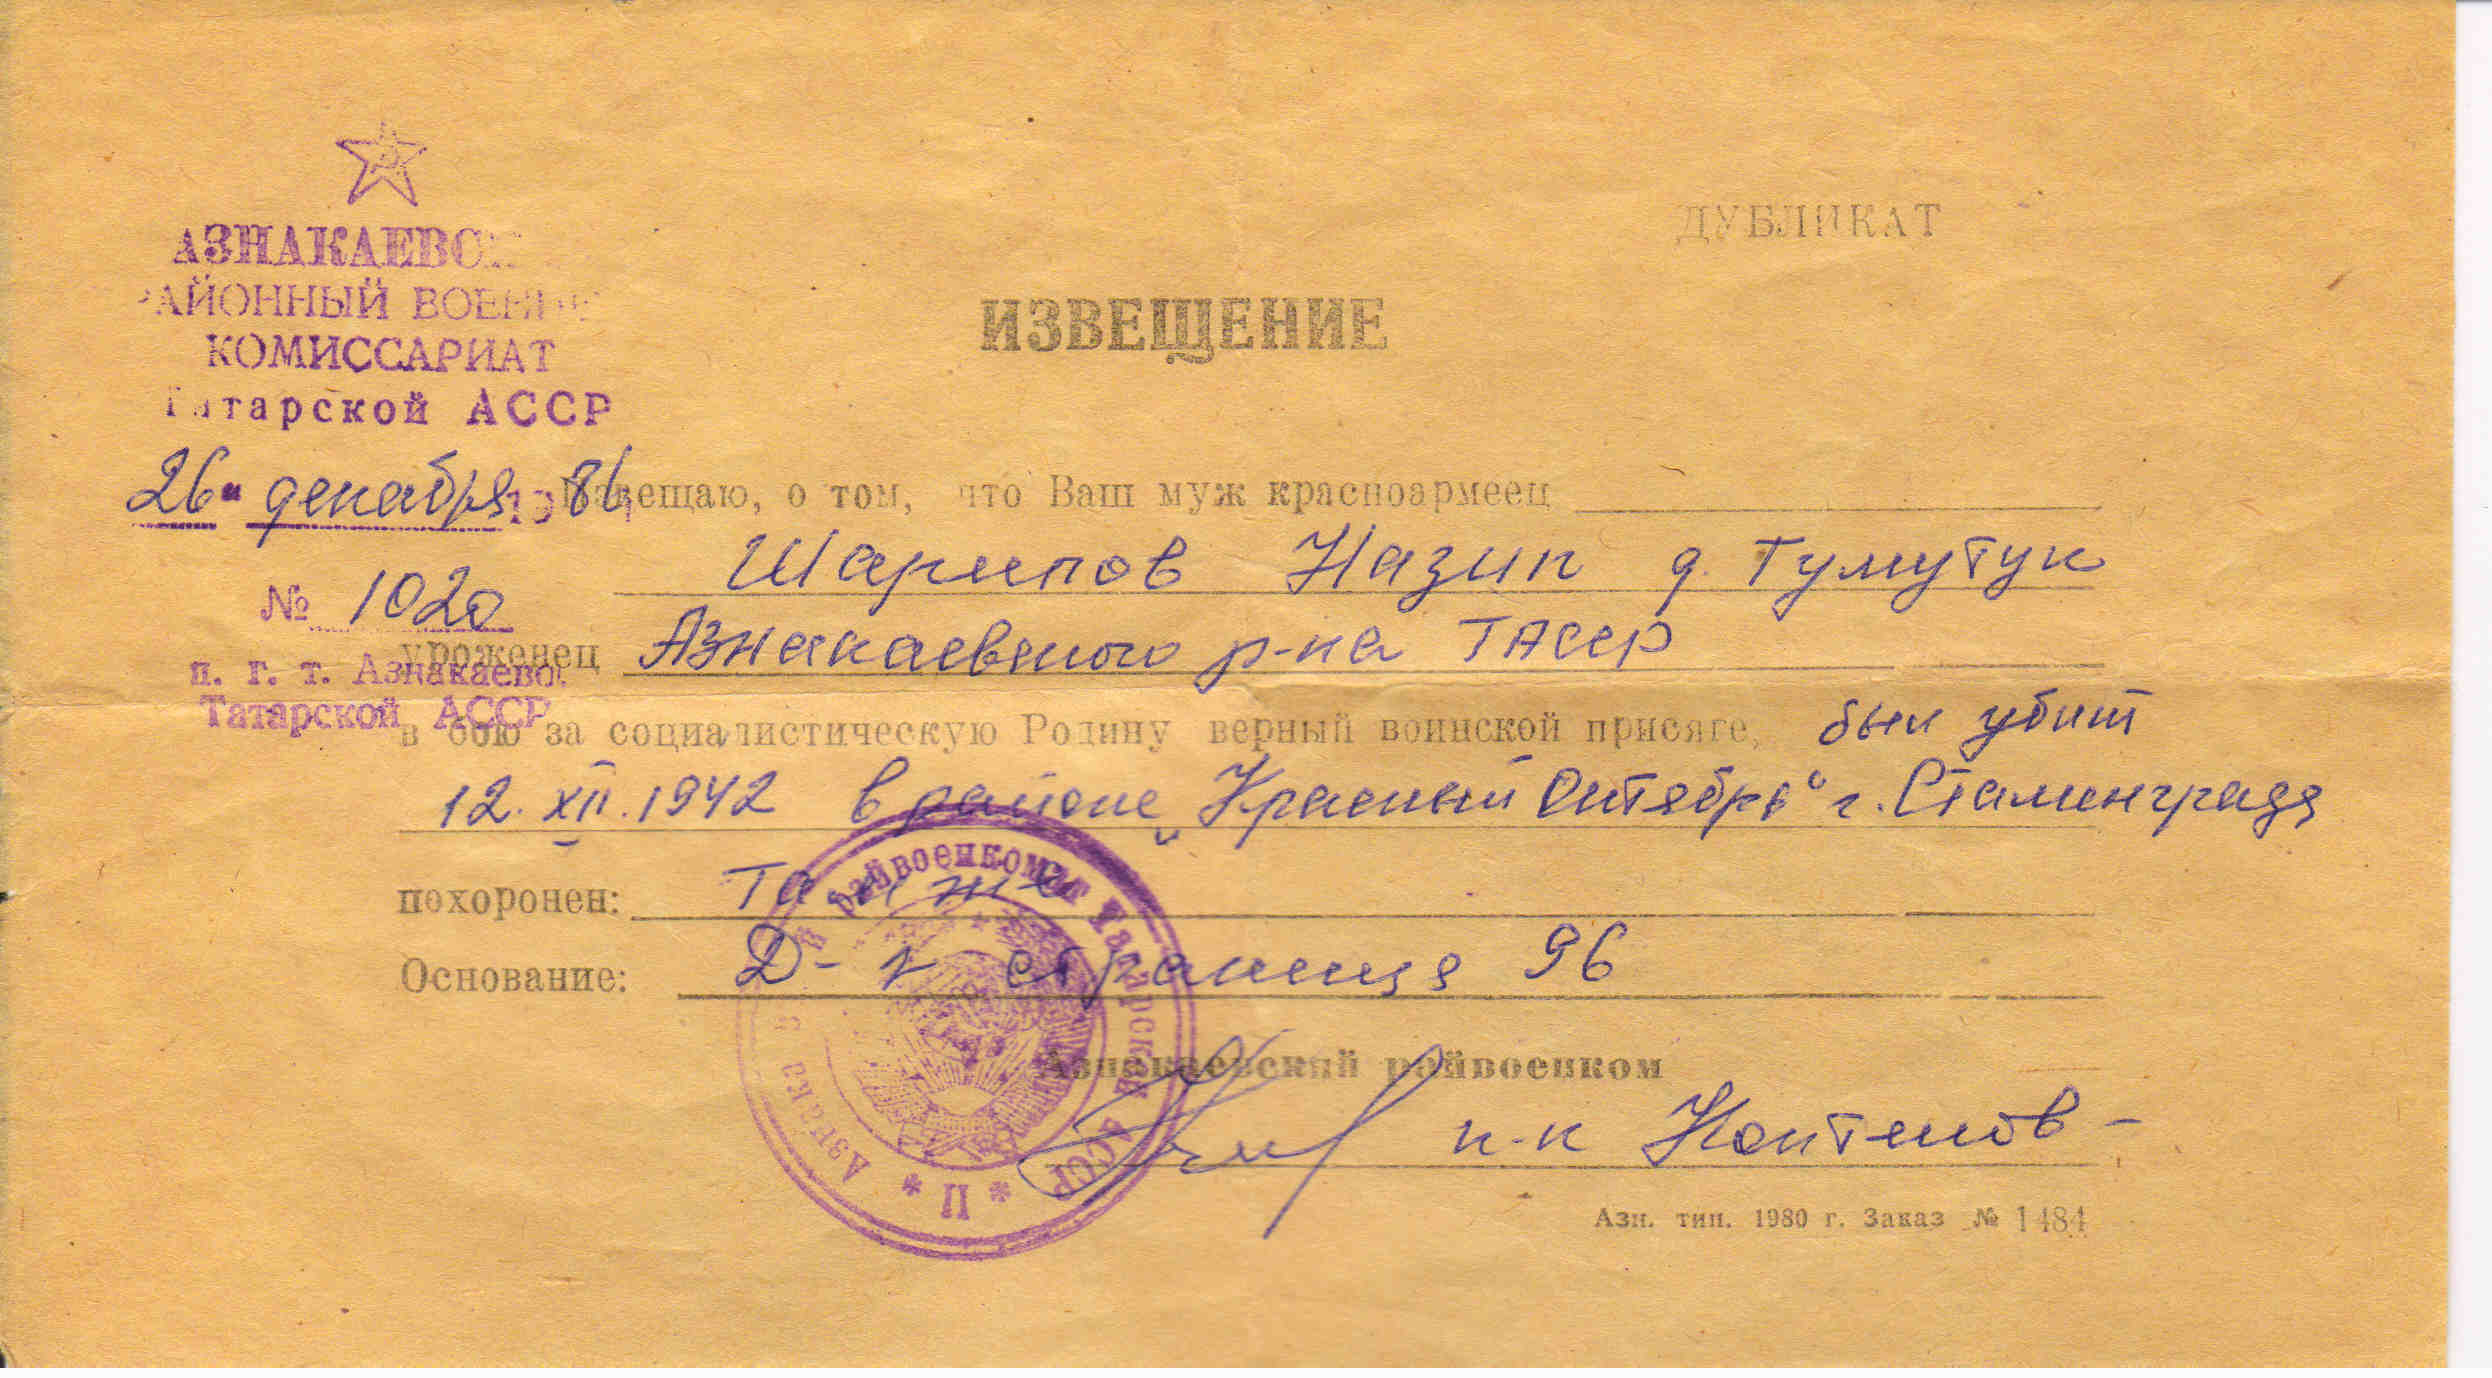 АЗНАКАЕВС
РАЙОННЫЙ ВОЕНН
КОМИССАРИАТ
Татарской АССР
26 декабря 1986
№ 1020
п. г. т. Азнакаево,
Татарской АССР
ДУБЛИКАТ
ИЗВЕЩЕНИЕ
Извещаю, о том, что Ваш муж красноармеец
Шарипов Назип д. Тумутук
уроженец Азнакаевского р-на ТАССР
в бою за социалистическую Родину верный воинской присяге, был убит
12.XII.1942 в районе „Красный Октябрь" г. Сталинграда
похоронен: Там же
Основание: страница 96
Азнакаевский райвоенком
п-к
Азн. тип. 1980 г. Заказ № 1484
й райвоенкомат Татарской АССР * II * Азнака